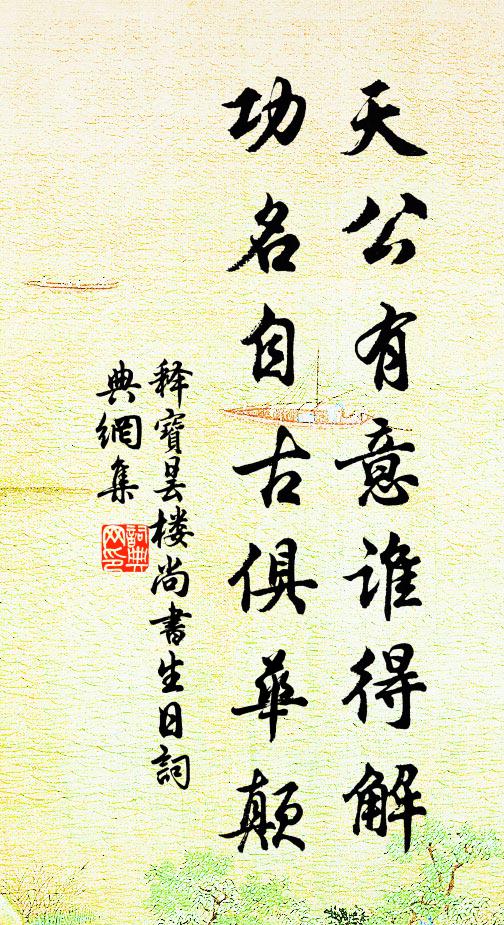 天公有意谁得解
功名自古俱華顛
释寶昙楼尚書生日詞
典網集
詞典
网印